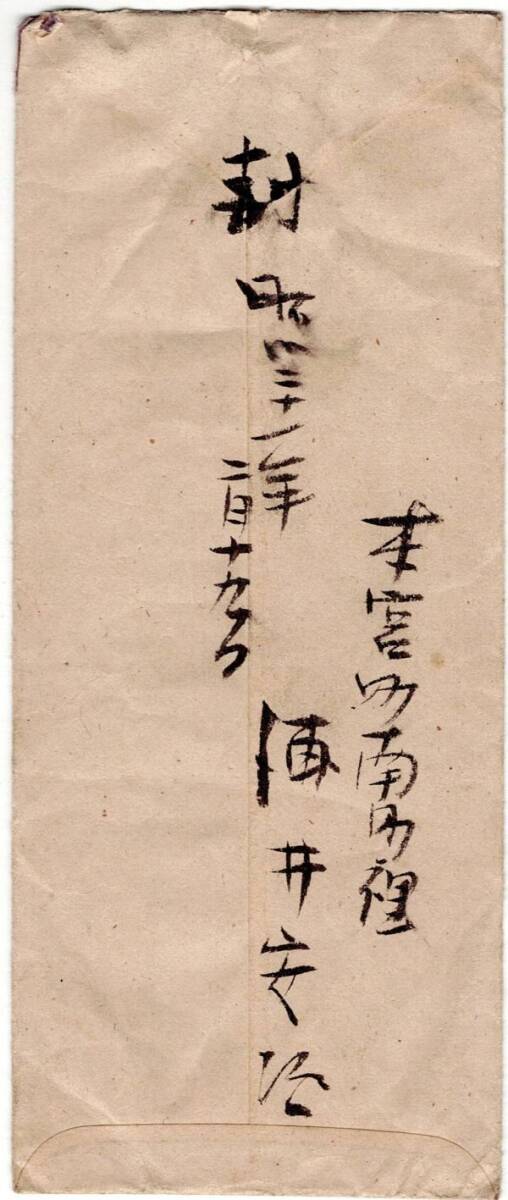 本宮町南町裡
酒井安治
封
昭和二十一年
二月十九日